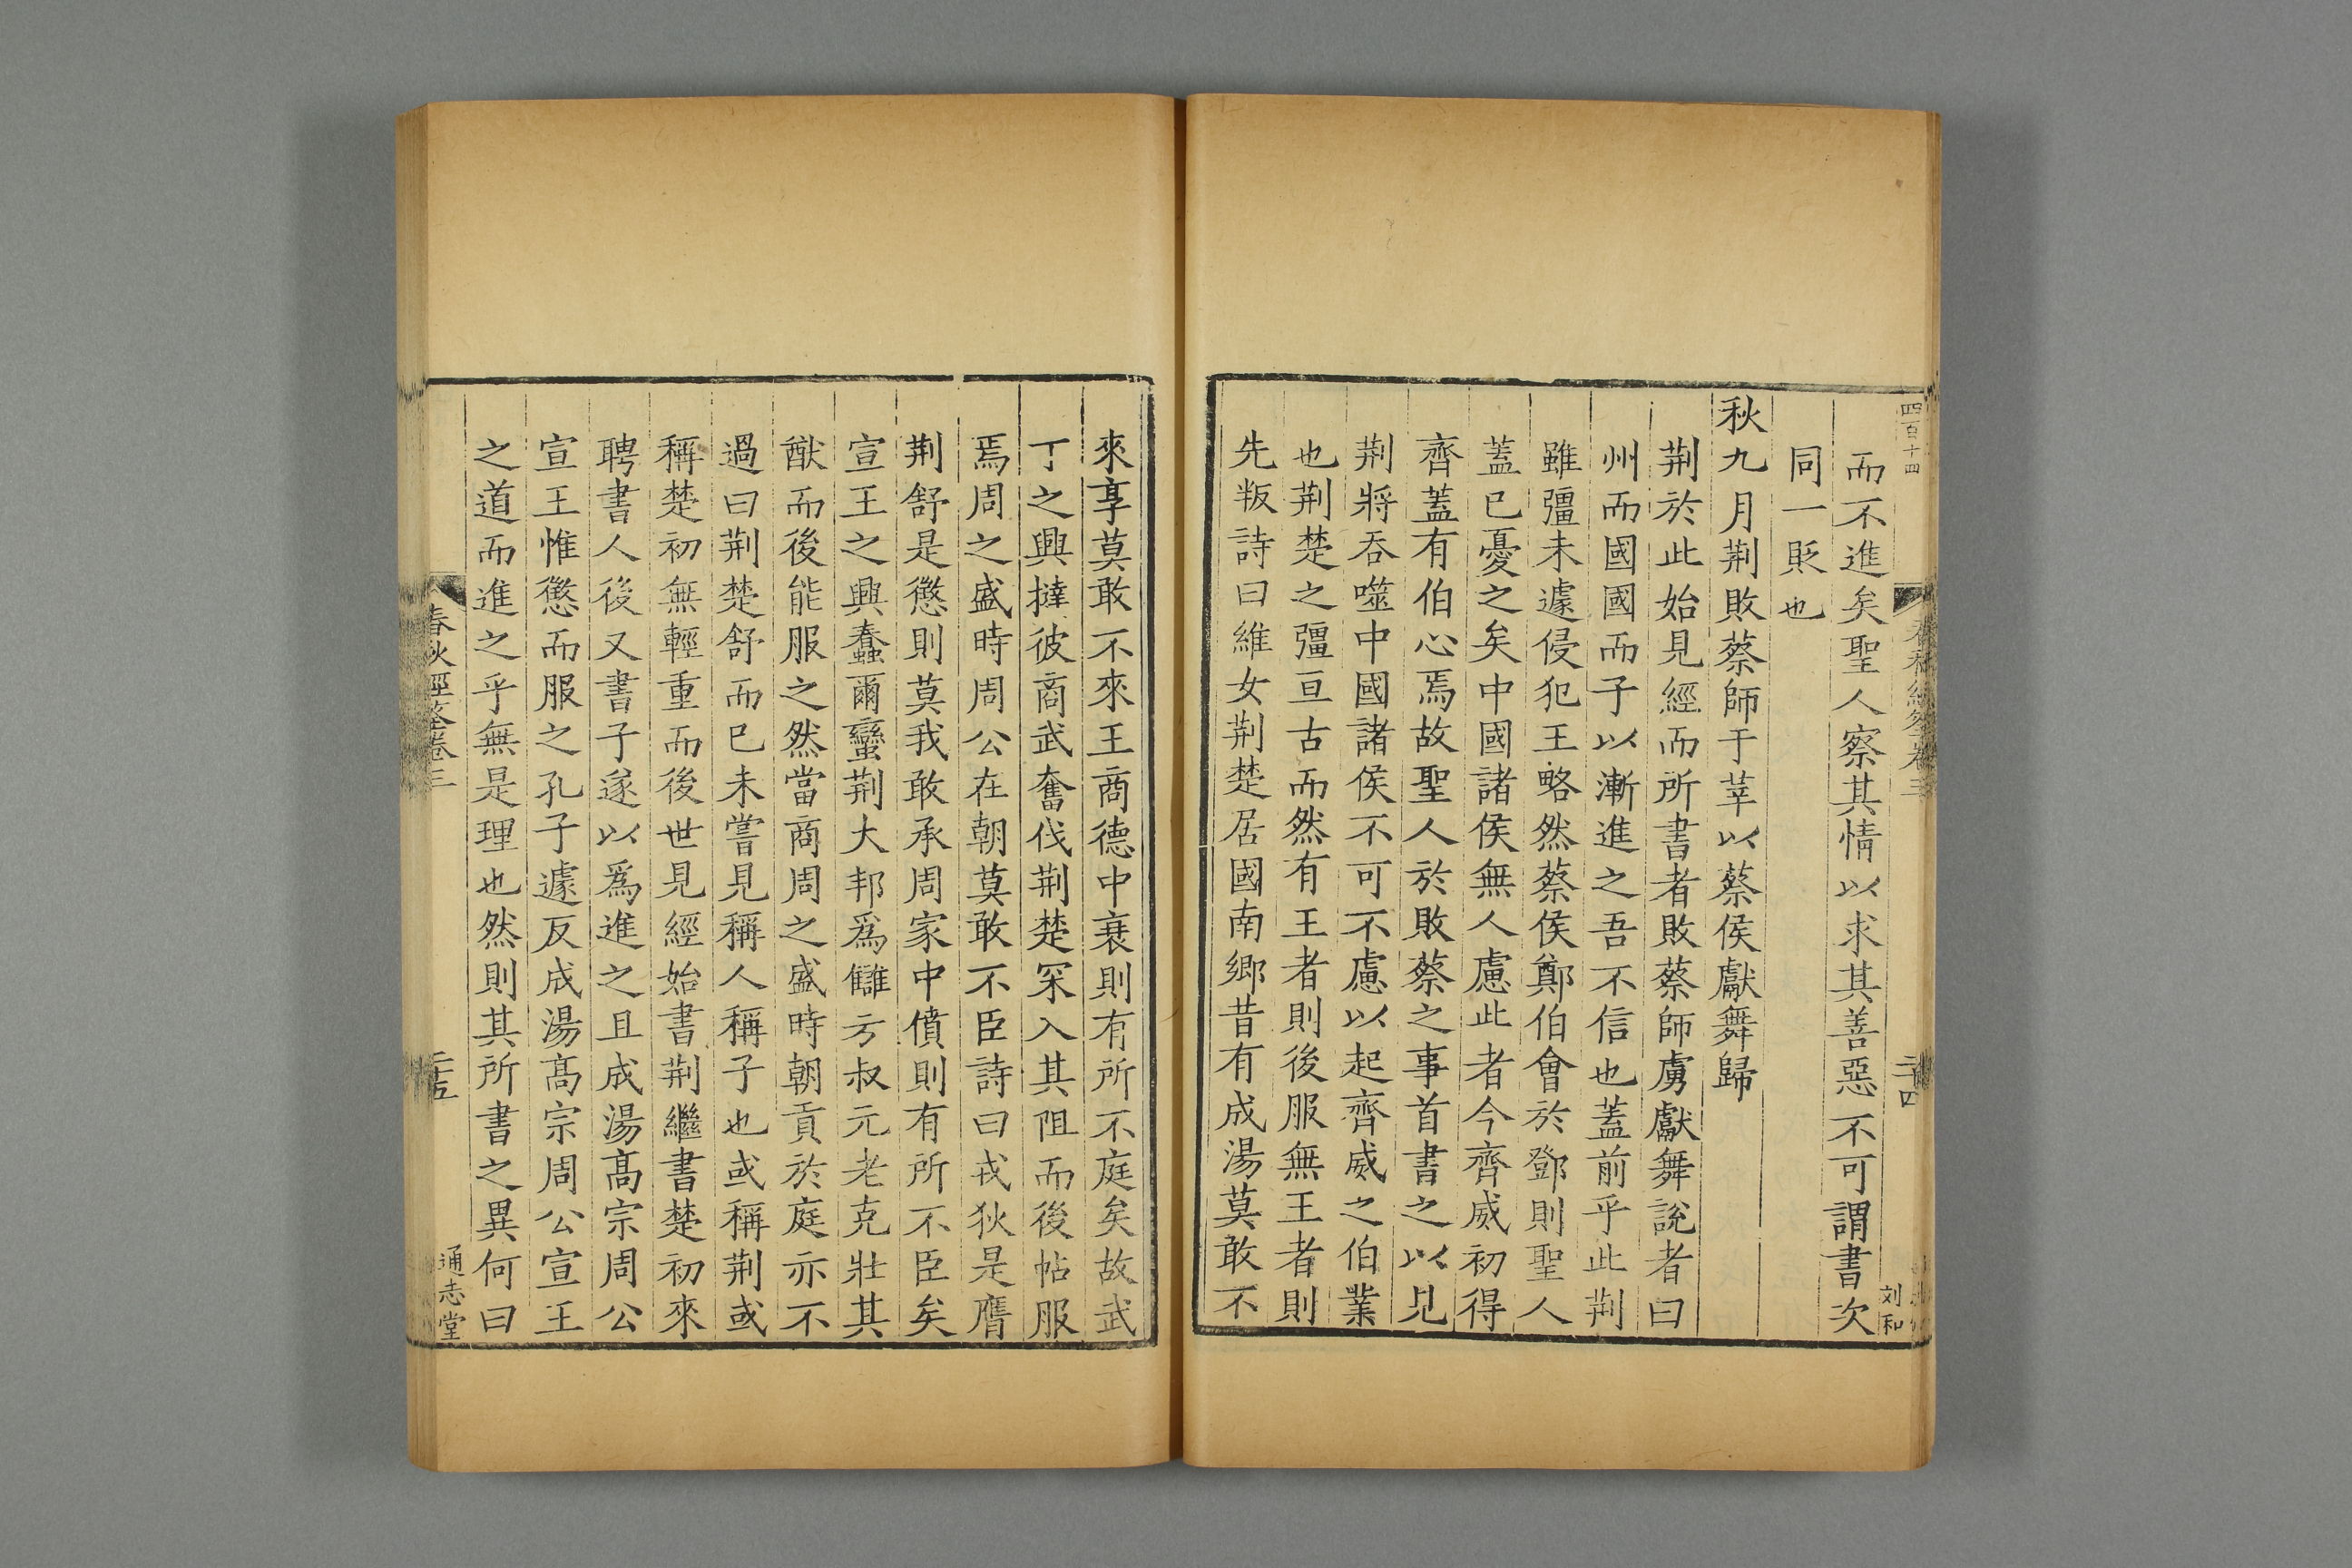 四百十四
春秋經筌卷三
二十四
刘和
而不進矣聖人察其情以求其善惡不可謂書次
同一貶也
秋九月荆敗蔡師于莘以蔡侯獻舞歸
荆於此始見經而所書者敗蔡師虜獻舞說者曰
州而國國而子以漸進之吾不信也蓋前乎此荆
雖彊未遽侵犯王略然蔡侯鄭伯會於鄧則聖人
蓋已憂之矣中國諸侯無人慮此者今齊威初得
齊蓋有伯心焉故聖人於敗蔡之事首書之以見
荆將吞噬中國諸侯不可不慮以起齊威之伯業
也荆楚之彊亘古而然有王者則後服無王者則
先叛詩曰維女荆楚居國南鄉昔有成湯莫敢不
來享莫敢不來王商德中衰則有所不庭矣故武
丁之興撻彼商武奮伐荆楚罙入其阻而後帖服
焉周之盛時周公在朝莫敢不臣詩曰戎狄是膺
荆舒是懲則莫我敢承周家中僨則有所不臣矣
宣王之興蠢爾蠻荆大邦爲讎方叔元老克壯其
猷而後能服之然當商周之盛時朝貢於庭亦不
過曰荆楚舒而已未嘗見稱人稱子也或稱荆或
稱楚初無輕重而後世見經始書荆繼書楚初來
聘書人後又書子遂以爲進之且成湯髙宗周公
宣王惟懲而服之孔子遽反成湯髙宗周公宣王
之道而進之乎無是理也然則其所書之異何曰
春秋經筌卷三
二十五
通志堂